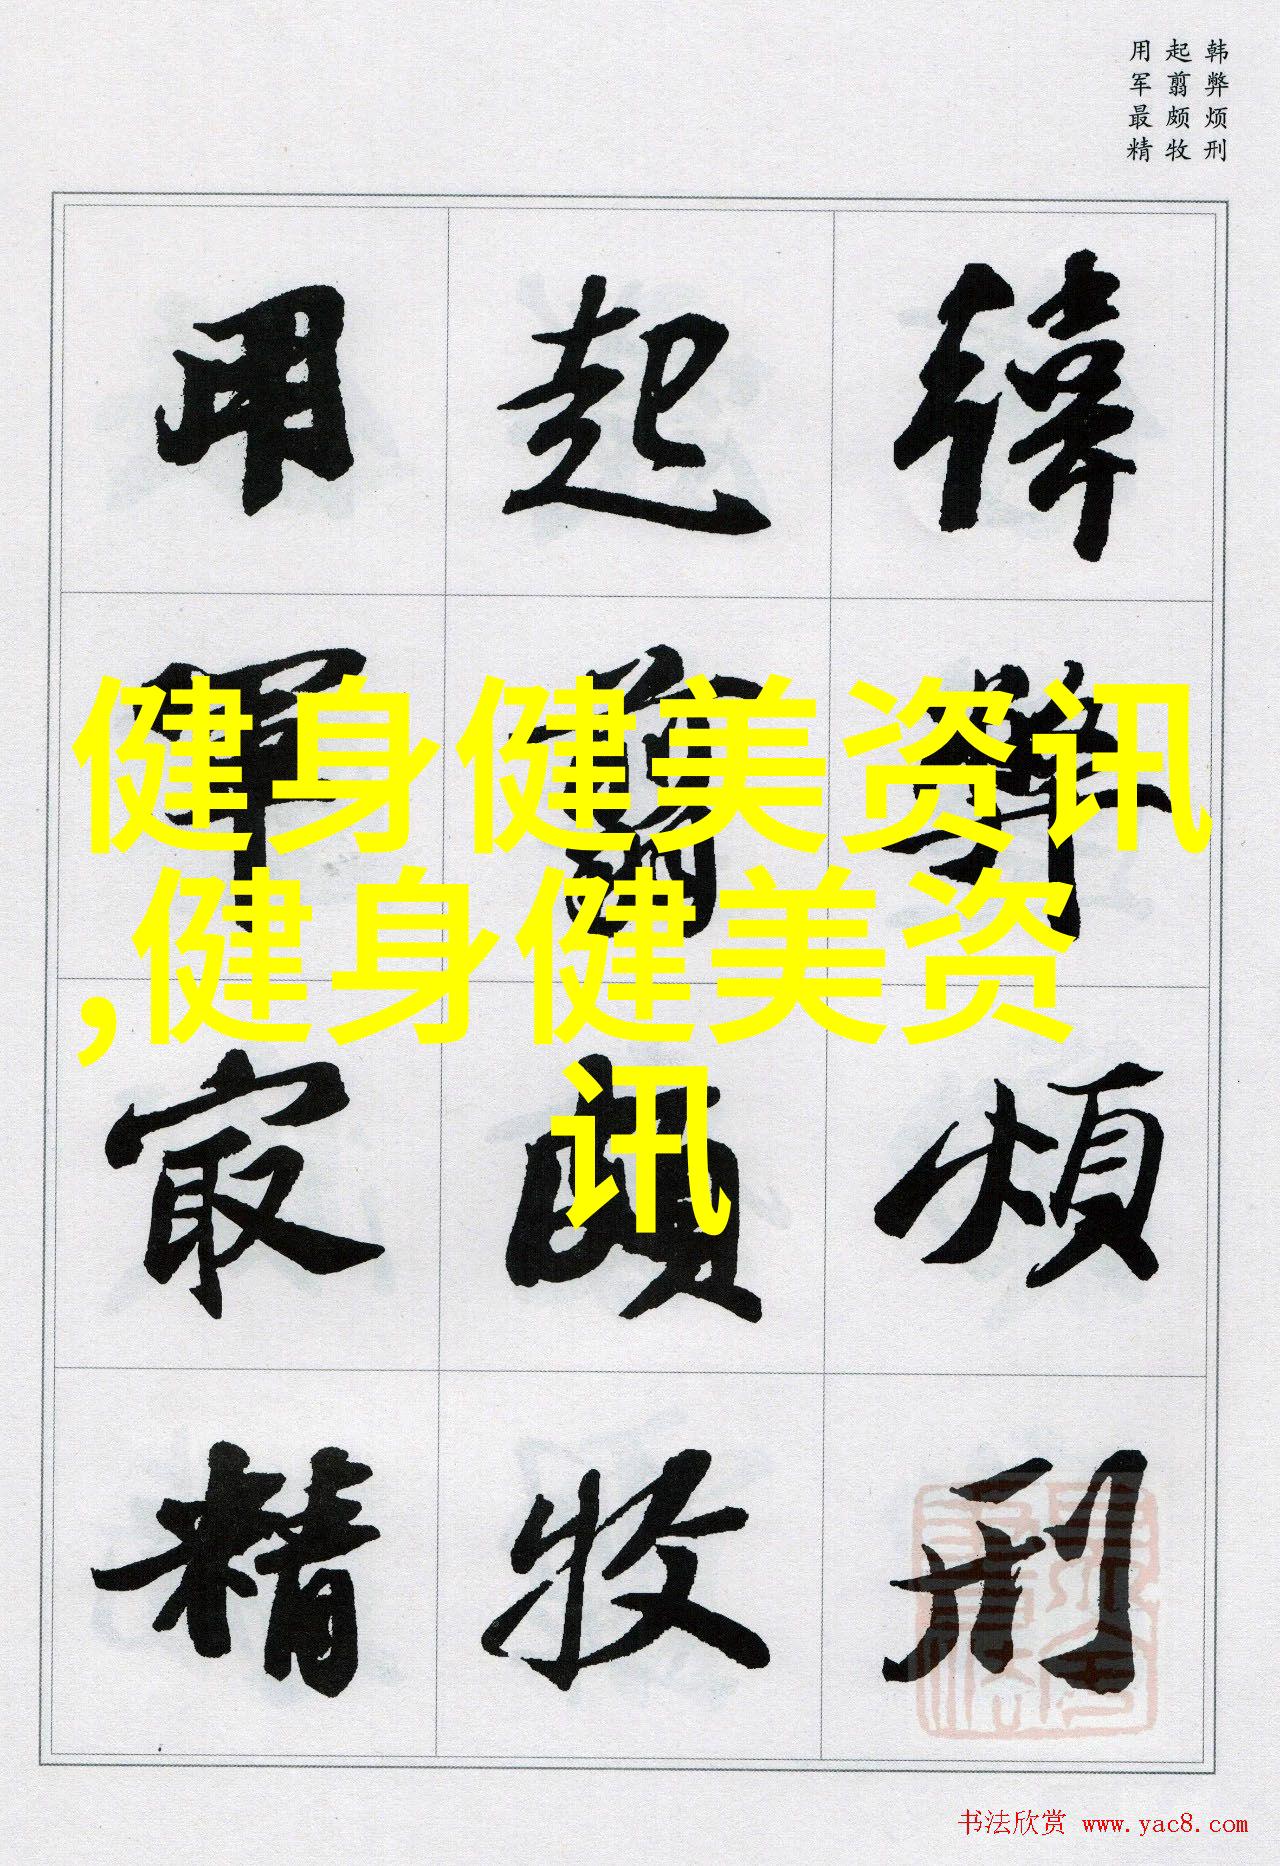 韩弊烦刑
起翦颇牧
用军最精
韓弊煩刑
起翦頗牧
用軍最精
健身健美资讯
,健身健美资
讯
书法欣赏 www.yac8.com